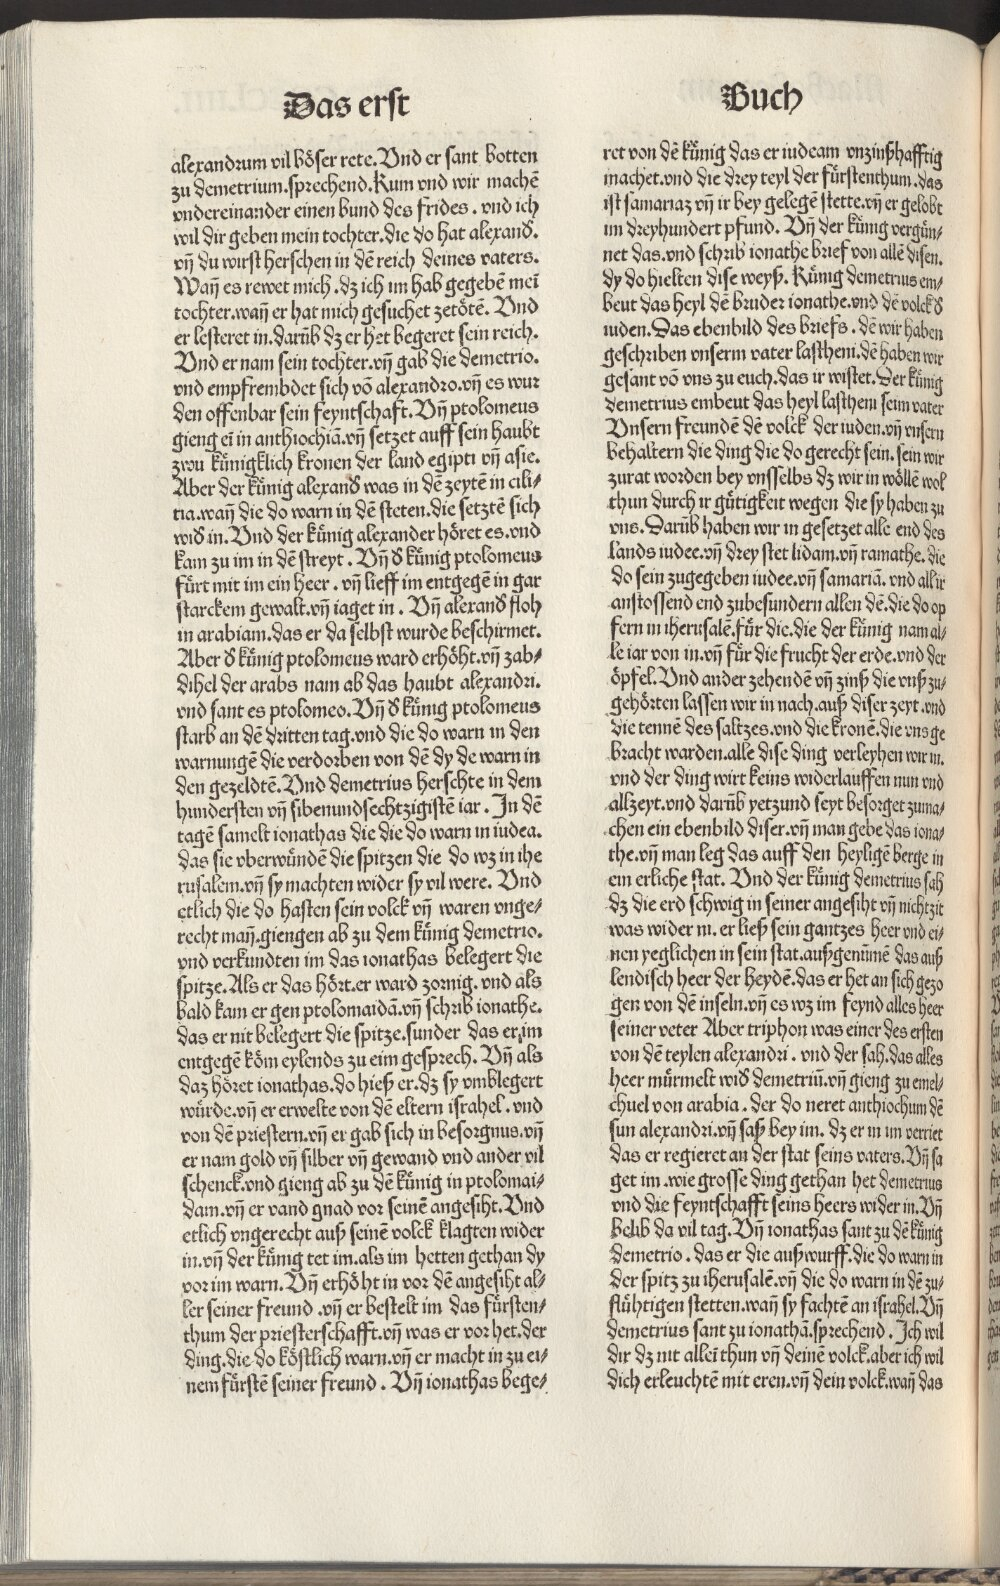 Das erst
Buch
alexandrum vil böser rete. Vnd er sant botten
zu demetrium. sprechend. Kum vnd wir machē
vndereinander einen bund des frides. vnd ich
wil dir geben mein tochter. die do hat alexand̄.
vñ du wirst herschen in dē reich deines vaters.
Wañ es rewet mich. dz ich im hab gegebē mei
tochter. wañ er hat mich gesuchet zetötē. Vnd
er lesteret in. darūb dz er het begeret sein reich.
Vnd er nam sein tochter. vñ gab die demetrio.
vnd empfrembdet sich vō alexandro. vñ es wur
den offenbar sein feyntschaft. Vñ ptolomeus
gieng ei in anthiochiā. vñ setzet auff sein haubt
zwu künigklich kronen der land egipti vñ asie.
Aber der künig alexand̄ was in dē zeytē in cili⸗
tia. wañ die do warn in dē steten. die setztē sich
wid̄ in. Vnd der künig alexander höret es. vnd
kam zu im in dē streyt. Vñ d̄ künig ptolomeus
fürt mit im ein heer. vñ lieff im entgegē in gar
starckem gewalt. vñ iaget in. Vñ alexand̄ floh
in arabiam. das er da selbst wurde beschirmet.
Aber d̄ künig ptolomeus ward erhöht. vñ zab⸗
dihel der arabs nam ab das haubt alexandri.
vnd sant es ptolomeo. Vñ d̄ künig ptolomeus
starb an dē dritten tag. vnd die do warn in den
warnungē die verdorben von dē dy de warn in
den gezeldtē. Vnd demetrius herschte in dem
hundersten vñ sibenundsechtzigistē iar. In dē
tagē samelt ionathas die die do warn in iudea.
das sie vberwündē die spitzen die do wz in ihe
rusalem. vñ sy machten wider sy vil were. Vnd
etlich die do hasten sein volck vñ waren vnge⸗
recht mañ. giengen ab zu dem künig demetrio.
vnd verkundten im das ionathas belegert die
spitze. Als er das hört. er ward zornig. vnd als
bald kam er gen ptolomaidā. vñ schrib ionathe.
das er nit belegert die spitze. sunder das er im
entgegē kōm eylends zu eim gesprech. Vñ als
daz höret ionathas. do hieß er. dz sy vmblegert
würde. vñ er erwelte von dē eltern israhel. vnd
von dē priestern. vñ er gab sich in besorgnus. vñ
er nam gold vñ silber vñ gewand vnd ander vil
schenck. vnd gieng ab zu dē künig in ptolomai⸗
dam. vñ er vand gnad vor seinē angesiht. Vnd
etlich vngerecht auß seinē volck klagten wider
in. vñ der künig tet im. als im hetten gethan dy
vor im warn. Vñ erhöht in vor dē angesiht al⸗
ler seiner freund. vñ er bestelt im das fürsten⸗
thum der priesterschafft. vñ was er vor het. der
ding. die do köstlich warn. vñ er macht in zu ei⸗
nem fürstē seiner freund. Vñ ionathas bege⸗
ret von dē künig das er iudeam vnzinßhafftig
machet. vnd die drey teyl der fürstenthum. das
ist samariaz vñ ir bey gelegē stette. vñ er gelobt
im dreyhundert pfund. Vñ der künig vergün⸗
net das. vnd schrib ionathe brief von allē disen.
dy do hielten dise weyß. Künig demetrius em⸗
beut das heyl dē bruder ionathe. vnd dē volck d̄
iuden. Das ebenbild des briefs. dē wir haben
geschriben vnserm vater lastheni. dē haben wir
gesant vō vns zu euch. das ir wistet. Der künig
demetrius embeut das heyl lastheni seim vater
Vnsern freundē dē volck der iuden. vñ vnsern
behaltern die ding die do gerecht sein. sein wir
zurat worden bey vnsselbs dz wir in wöllē wol
thun durch ir gütigkeit wegen die sy haben zu
vns. Darūb haben wir in gesetzet alle end des
lands iudee. vñ drey stet lidam. vñ ramathe. die
do sein zugegeben iudee. vñ samariā. vnd all ir
anstossend end zubesundern allen dē. die do op
fern in iherusalē. für die. die der künig nam al⸗
le iar von in. vñ für die frucht der erde. vnd der
öpfel. Vnd ander zehendē vñ zinß die vnß zu⸗
gehörten lassen wir in nach. auß diser zeyt. vnd
die tennē des saltzes. vnd die kronē. die vns ge
bracht warden. alle dise ding verleyhen wir in.
vnd der ding wirt keins widerlauffen nun vnd
allzeyt. vnd darūb yetzund seyt besorget zuma⸗
chen ein ebenbild diser. vñ man gebe das iona⸗
the. vñ man leg das auff den heyligē berge in
ein erliche stat. Vnd der künig demetrius sah
dz die erd schwig in seiner angesiht vñ nichtzit
was wider in. er ließ sein gantzes heer vnd ei⸗
nen yeglichen in sein stat. außgenūmē das auß
lendisch heer der heydē. das er het an sich gezo
gen von dē inseln. vñ es wz im feynd alles heer
seiner veter Aber triphon was einer des ersten
von dē teylen alexandri. vnd der sah. das alles
heer mürmelt wid̄ demetriū. vñ gieng zu emel⸗
chuel von arabia. der do neret anthiochum dē
sun alexandri. vñ saß bey im. dz er in im verriet
das er regieret an der stat seins vaters. Vñ sa
get im. wie grosse ding gethan het demetrius
vnd die feyntschafft seins heers wider in. Vñ
belib da vil tag. Vñ ionathas sant zu dē künig
demetrio. das er die außwurff. die do warn in
der spitz zu iherusalē. vñ die do warn in dē zu⸗
flühtigen stetten. wañ sy fachtē an israhel. Vñ
demetrius sant zu ionathā. sprechend. Ich wil
dir dz nit allei thun vñ deinē volck. aber ich wil
dich erleuchtē mit eren. vñ dein volck. wañ das